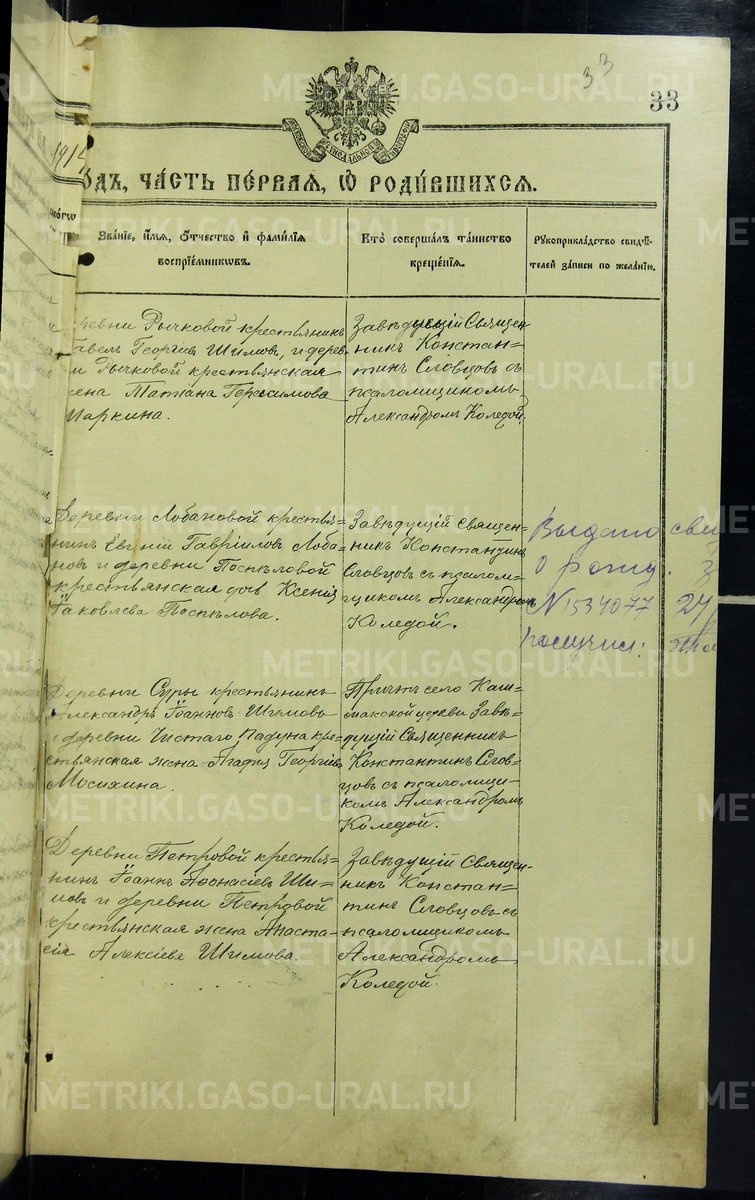 33
33
1915
ОДЪ, ЧА́СТЬ ПЕ́РВАЯ, Ѿ РОДИ́ВШИХСЯ.
ЗВА́НІЕ, И́МЯ, О́ТЧЕСТВО И́ ФАМИ́ЛІЯ
ВОСПРІЕ́МНИКѠВЪ.
КТО̀ СОВЕРША́ЛЪ ТА́ИНСТВО
КРЕЩЕ́НІЯ.
РУКОПРИКЛА́ДСТВО СВИДѢ́-
ТЕЛЕЙ ЗА́ПИСИ ПО ЖЕЛА́НІЮ.
ревни Рычковой крестьянинъ
авелъ Георгіевъ Шимовъ, и дерев
и Рычковой крестьянская
жена Татіана Герасимова
Маркина.
Завѣдующій Священ-
никъ Констан=
тинъ Словцовъ съ
псаломщикомъ
Александромъ Коледой.
Деревни Лобановой крестья=
нинъ Евгеній Гавріиловъ Лоба=
новъ и деревни Поспѣловой
крестьянская дочь Ксенія
Іаковлева Поспѣлова.
Завѣдущій Священ-
никъ Константинъ
Словцовъ съ псалом=
щикомъ Александромъ
Коледой.
Выдано свид
о рожд.
№ 1534077 24/
получил:
Деревни Суры крестьянинъ
Александръ Іоанновъ Шимовъ
и деревни Чистаго Падуна кре=
стьянская жена Агафія Георгіева
Мосихина.
Причтъ село Каш=
макской церкви Завѣ=
дущій Священникъ
Константинъ Слов=
цовъ съ псаломщи-
комъ Александромъ
Коледой.
Деревни Петровой крестья=
нинъ Іоаннъ Аѳонасіевъ Ши=
мовъ и деревни Петровой
крестьянская жена Анаста=
сія Алексіева Шимова.
Завѣдущій Священ-
никъ Констан=
тинъ Словцовъ съ
псаломщикомъ
Александромъ
Коледой.
METRIKI.GASO-URAL.RU